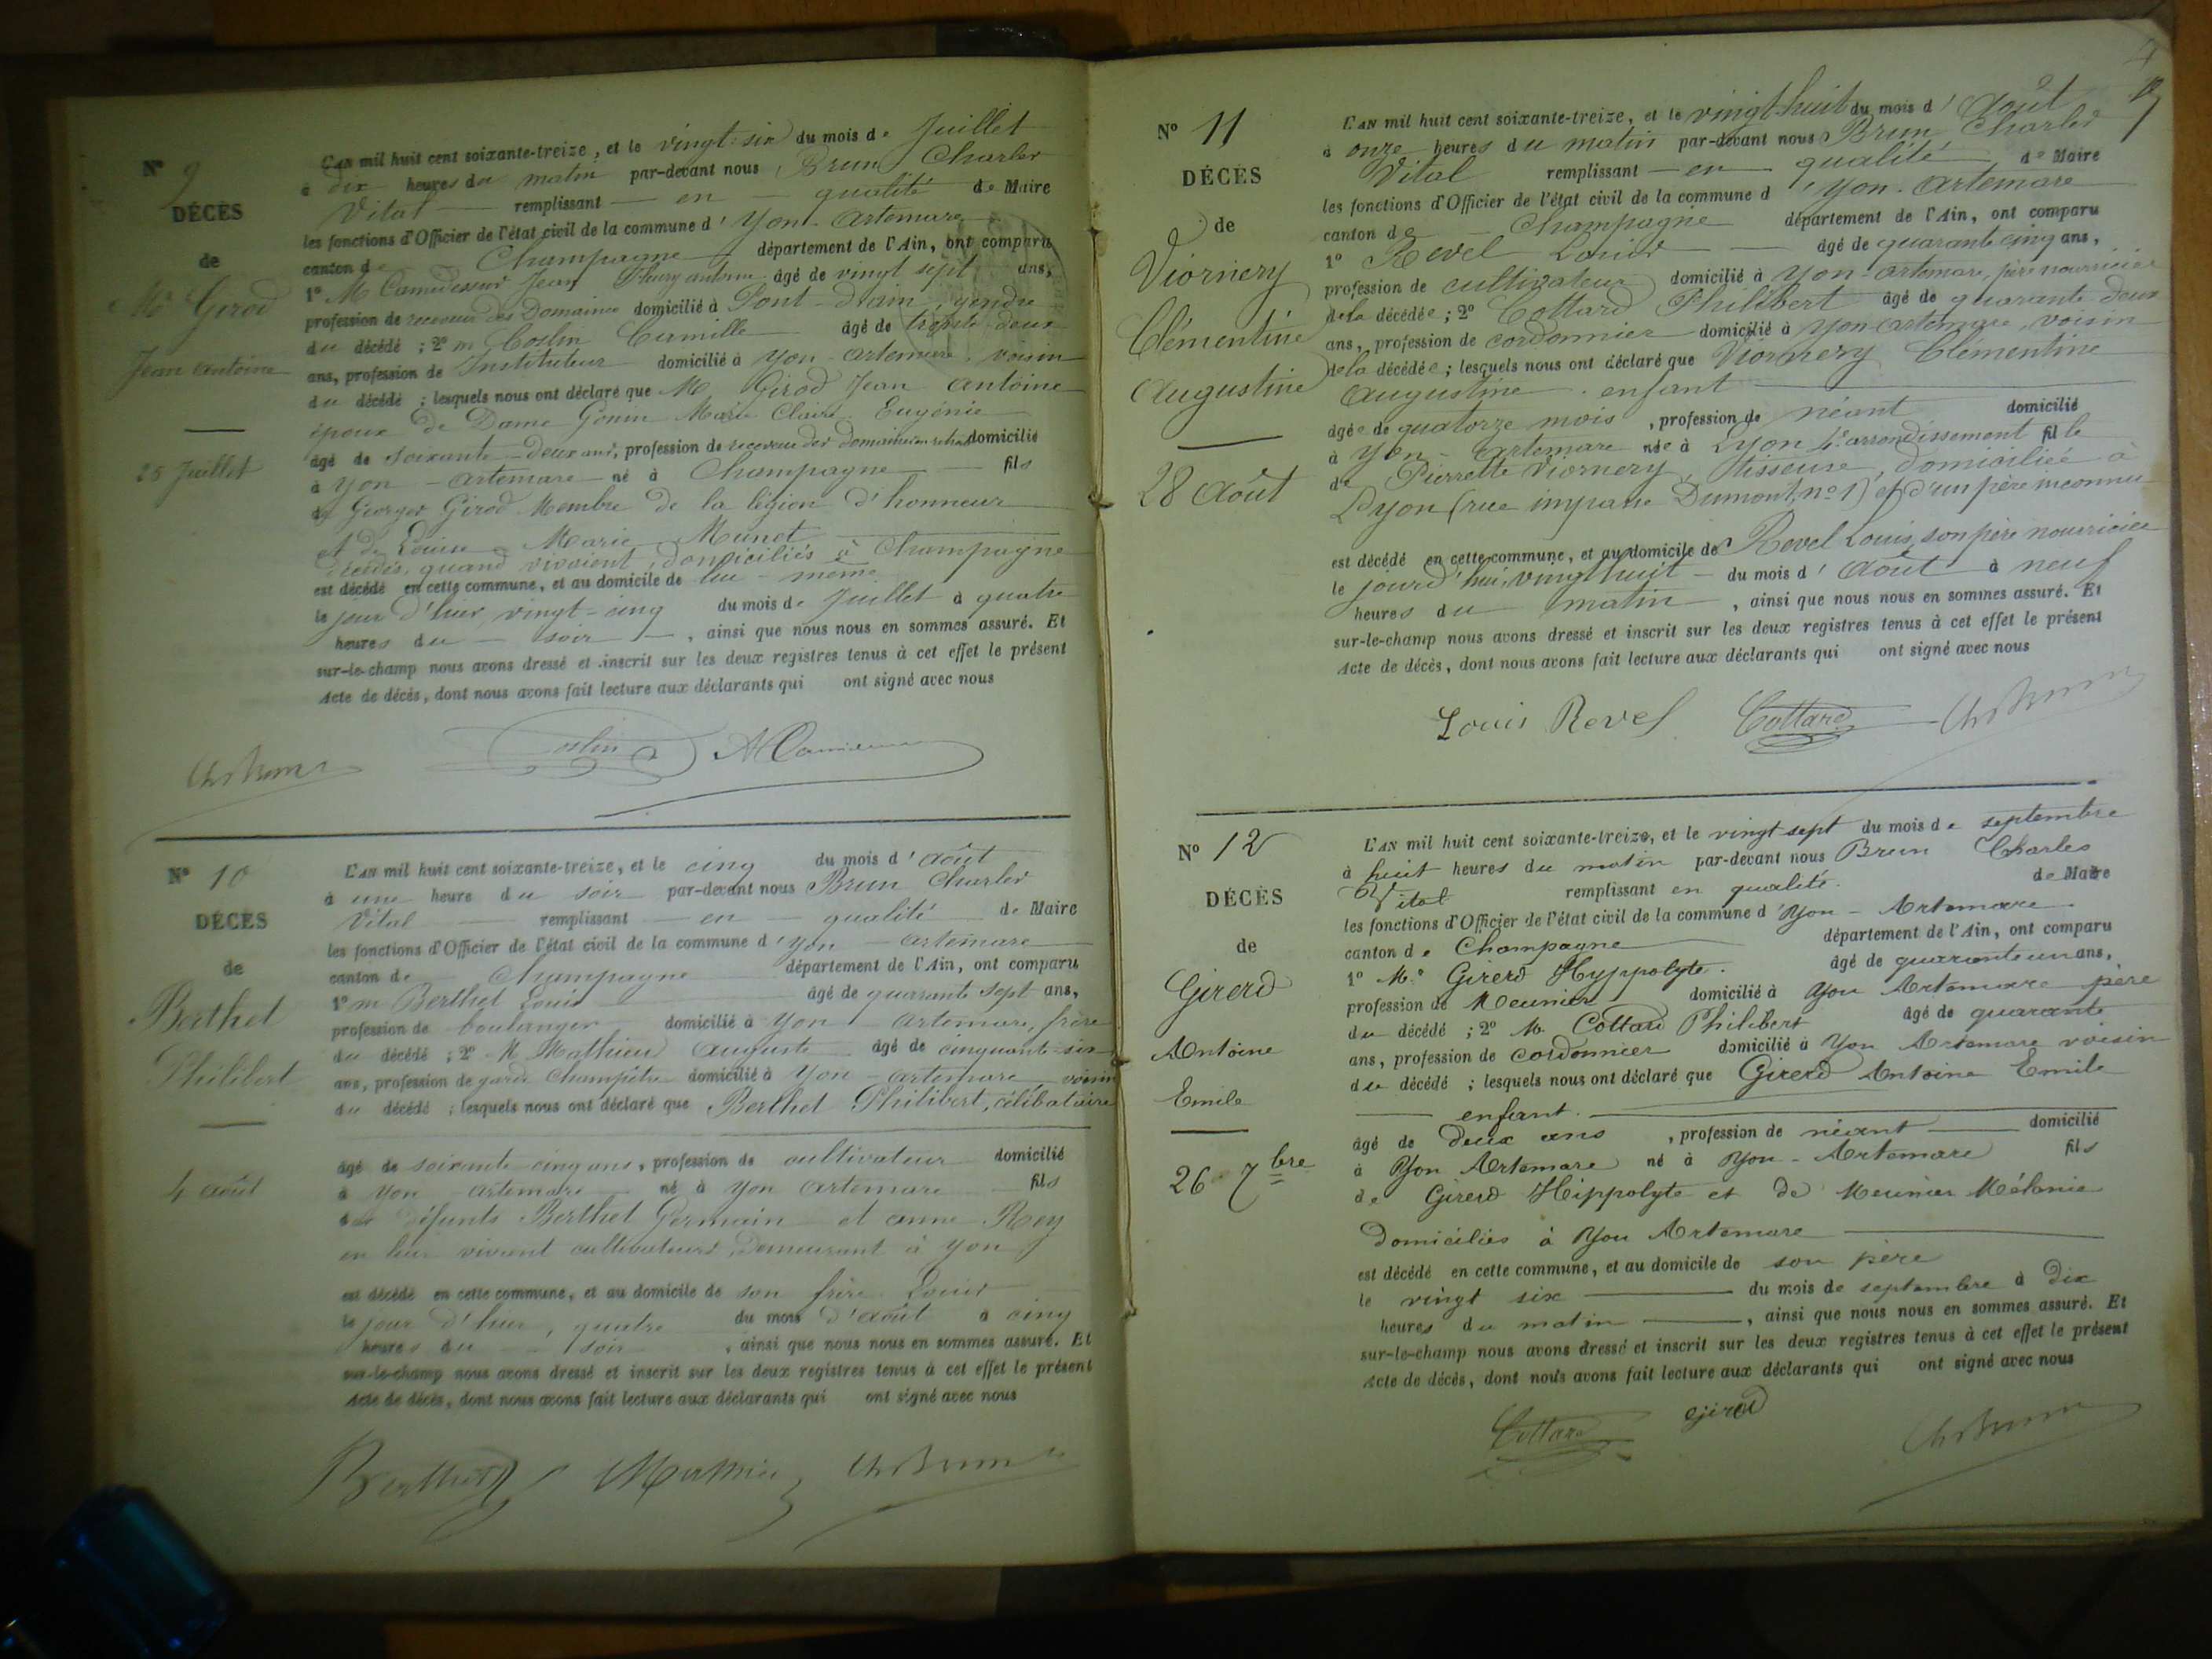 N° 9
DÉCÈS
de
Mr Girod
Jean Antoine
25 Juillet
L'AN mil huit cent soixante-treize, et le vingt-six du mois de Juillet
à dix heures du matin par-devant nous Brun Charles
Vital remplissant en qualité de Maire
les fonctions d'Officier de l'état civil de la commune d'Yon-Artemare
canton de Champagne département de l'Ain, ont comparu
1° M Jean Fleury antoine âgé de vingt sept ans,
profession de receveur des Domaines domicilié à Pont-d'ain, gendre
du décédé ; 2° m Coslin Camille âgé de trente-deux
ans, profession de Instituteur domicilié à Yon-Artemare, voisin
du décédé ; lesquels nous ont déclaré que M Girod Jean Antoine
époux de Dame Gonin Marie Claire Eugénie
âgé de soixante-deux ans, profession de receveur des domaines en retraite domicilié
à Yon-Artemare né à Champagne fils
de Georges Girod Membre de la légion d'honneur
et de Louise Marie Munet
décédés, quand vivaient, domiciliés à Champagne
est décédé en cette commune, et au domicile de lui-même
le jour d'hier, vingt-cinq du mois de Juillet à quatre
heures du soir, ainsi que nous nous en sommes assuré. Et
sur-le-champ nous avons dressé et inscrit sur les deux registres tenus à cet effet le présent
Acte de décès, dont nous avons fait lecture aux déclarants qui ont signé avec nous
Ch Brun Coslin
N° 10
DÉCÈS
de
Berthet
Philibert
4 août
L'AN mil huit cent soixante-treize, et le cinq du mois d'août
à une heure du soir par-devant nous Brun Charles
Vital remplissant en qualité de Maire
les fonctions d'Officier de l'état civil de la commune d'Yon-Artemare
canton de Champagne département de l'Ain, ont comparu
1° m Berthet Louis âgé de quarante sept ans,
profession de boulanger domicilié à Yon-Artemare, frère
du décédé ; 2° M Mathieu Auguste âgé de cinquante-six
ans, profession de garde champêtre domicilié à Yon-Artemare voisin
du décédé ; lesquels nous ont déclaré que Berthet Philibert, célibataire
âgé de soixante-cinq ans, profession de cultivateur domicilié
à Yon-Artemare né à Yon Artemare fils
des défunts Berthet Germain et anne Rey
en leur vivant cultivateurs, demeurant à Yon
est décédé en cette commune, et au domicile de son frère Louis
le jour d'hier, quatre du mois d'août à cinq
heures du soir, ainsi que nous nous en sommes assuré. Et
sur-le-champ nous avons dressé et inscrit sur les deux registres tenus à cet effet le présent
Acte de décès, dont nous avons fait lecture aux déclarants qui ont signé avec nous
Berthet Mathieu Ch Brun
N° 11
DÉCÈS
de
Viornery
Clémentine
Augustine
28 Août
L'AN mil huit cent soixante-treize, et le vingt-huit du mois d'Août
à onze heures du matin par-devant nous Brun Charles
Vital remplissant en qualité de Maire
les fonctions d'Officier de l'état civil de la commune d'Yon-Artemare
canton de Champagne département de l'Ain, ont comparu
1° Revel Louis âgé de quarante cinq ans,
profession de cultivateur domicilié à Yon-Artemare, père nourricier
de la décédée ; 2° Cottard Philibert âgé de quarante-deux
ans, profession de cordonnier domicilié à Yon-Artemare, voisin
de la décédée ; lesquels nous ont déclaré que Viornery Clémentine
Augustine enfant
âgée de quatorze mois, profession de néant domicilié
à Yon-Artemare née à Lyon 4e arrondissement fille
de Pierrette Viornery, tisseuse, domiciliée à
Lyon (rue impasse Dumont, n° 1) et d'un père inconnu
est décédé en cette commune, et au domicile de Revel Louis, son père nourricier
le jourd'hui, vingt huit du mois d'Août à neuf
heures du matin, ainsi que nous nous en sommes assuré. Et
sur-le-champ nous avons dressé et inscrit sur les deux registres tenus à cet effet le présent
Acte de décès, dont nous avons fait lecture aux déclarants qui ont signé avec nous
Louis Revel Cottard Ch Brun
N° 12
DÉCÈS
de
Girerd
Antoine
Emile
26 7bre
L'AN mil huit cent soixante-treize, et le vingt sept du mois de septembre
à huit heures du matin par-devant nous Brun Charles
Vital remplissant en qualité de Maire
les fonctions d'Officier de l'état civil de la commune d'Yon-Artemare
canton de Champagne département de l'Ain, ont comparu
1° Mr Girerd Hyppolyte âgé de quarante un ans,
profession de Meunier domicilié à Yon Artemare père
du décédé ; 2° M. Cottard Philibert âgé de quarante
ans, profession de cordonnier domicilié à Yon Artemare voisin
du décédé ; lesquels nous ont déclaré que Girerd Antoine Emile
enfant
âgé de deux ans, profession de néant domicilié
à Yon Artemare né à Yon-Artemare fils
de Girerd Hippolyte et de Meunier Mélanie
domiciliés à Yon Artemare
est décédé en cette commune, et au domicile de son père
le vingt six du mois de septembre à dix
heures du matin, ainsi que nous nous en sommes assuré. Et
sur-le-champ nous avons dressé et inscrit sur les deux registres tenus à cet effet le présent
Acte de décès, dont nous avons fait lecture aux déclarants qui ont signé avec nous
Cottard Ch Brun